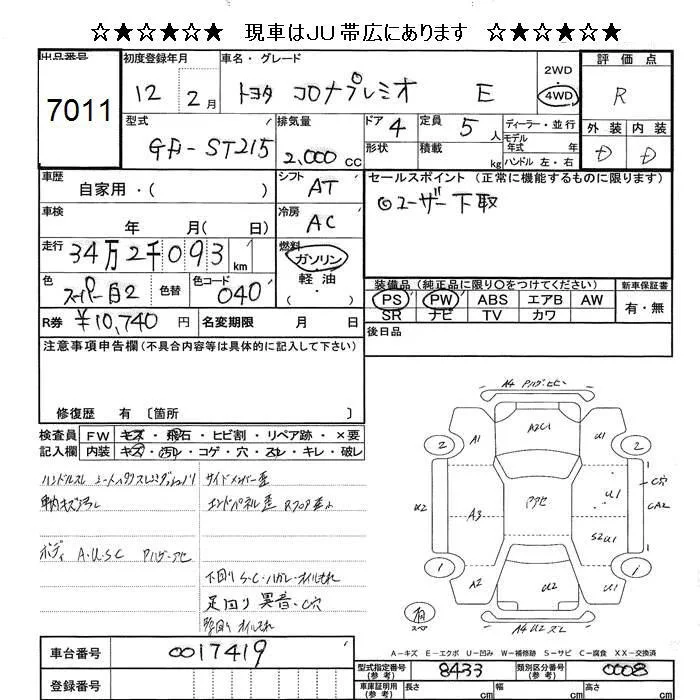 ☆★☆★☆★ 現車はJU帯広にあります ☆★☆★☆★
出品番号 初度登録年月 車名・グレード 2WD 評価点
7011 12年 2月 トヨタ コロナプレミオ E 4WD R
型式 排気量 ドア 定員 ディーラー・並行 外装 内装
GF-ST215 2,000cc 4 5人 モデル年式 年 D D
形状 積載 kg ハンドル 左・右
車歴 シフト セールスポイント(正常に機能するものに限ります)
自家用・( ) AT ◎ユーザー下取
車検 冷房
年 月( 日) AC
走行 燃料
34万2千093km ガソリン
色 色替 色コード 軽油 装備品(純正品に限り○をつけてください) 新車保証書
スーパー白2 040 PS PW ABS エアB AW 有・無
R券 ¥10,740円 名変期限 月 日 SR ナビ TV カワ
注意事項申告欄(不具合内容等は具体的に記入して下さい) 後日品
修復歴 有〔箇所
検査員 FW キズ・飛石・ヒビ割・リペア跡・×要
記入欄 内装 キズ・汚れ・コゲ・穴・スレ・キレ・破レ
ハンドルスレ
車内キズ汚れ
ボディ A.U.S.C
サイドメンバー歪
エンドパネル歪
下回り S.C.ハガレ.オイルもれ
足回り異音.C穴
A1 A2C1 U1
2 2
U2 A3 U1 C穴
CA2
S2U1
1 1
A2 U2 U2
有
スペア A4 U2 スレ
A-キズ E-エクボ U-凹み W-補修跡 S-サビ C-腐食 XX-交換済
車台番号 0017419 型式指定番号(参考) 8433 類別区分番号(参考) 0008
登録番号 車庫証明用(参考) 長さ cm 幅 cm 高さ cm